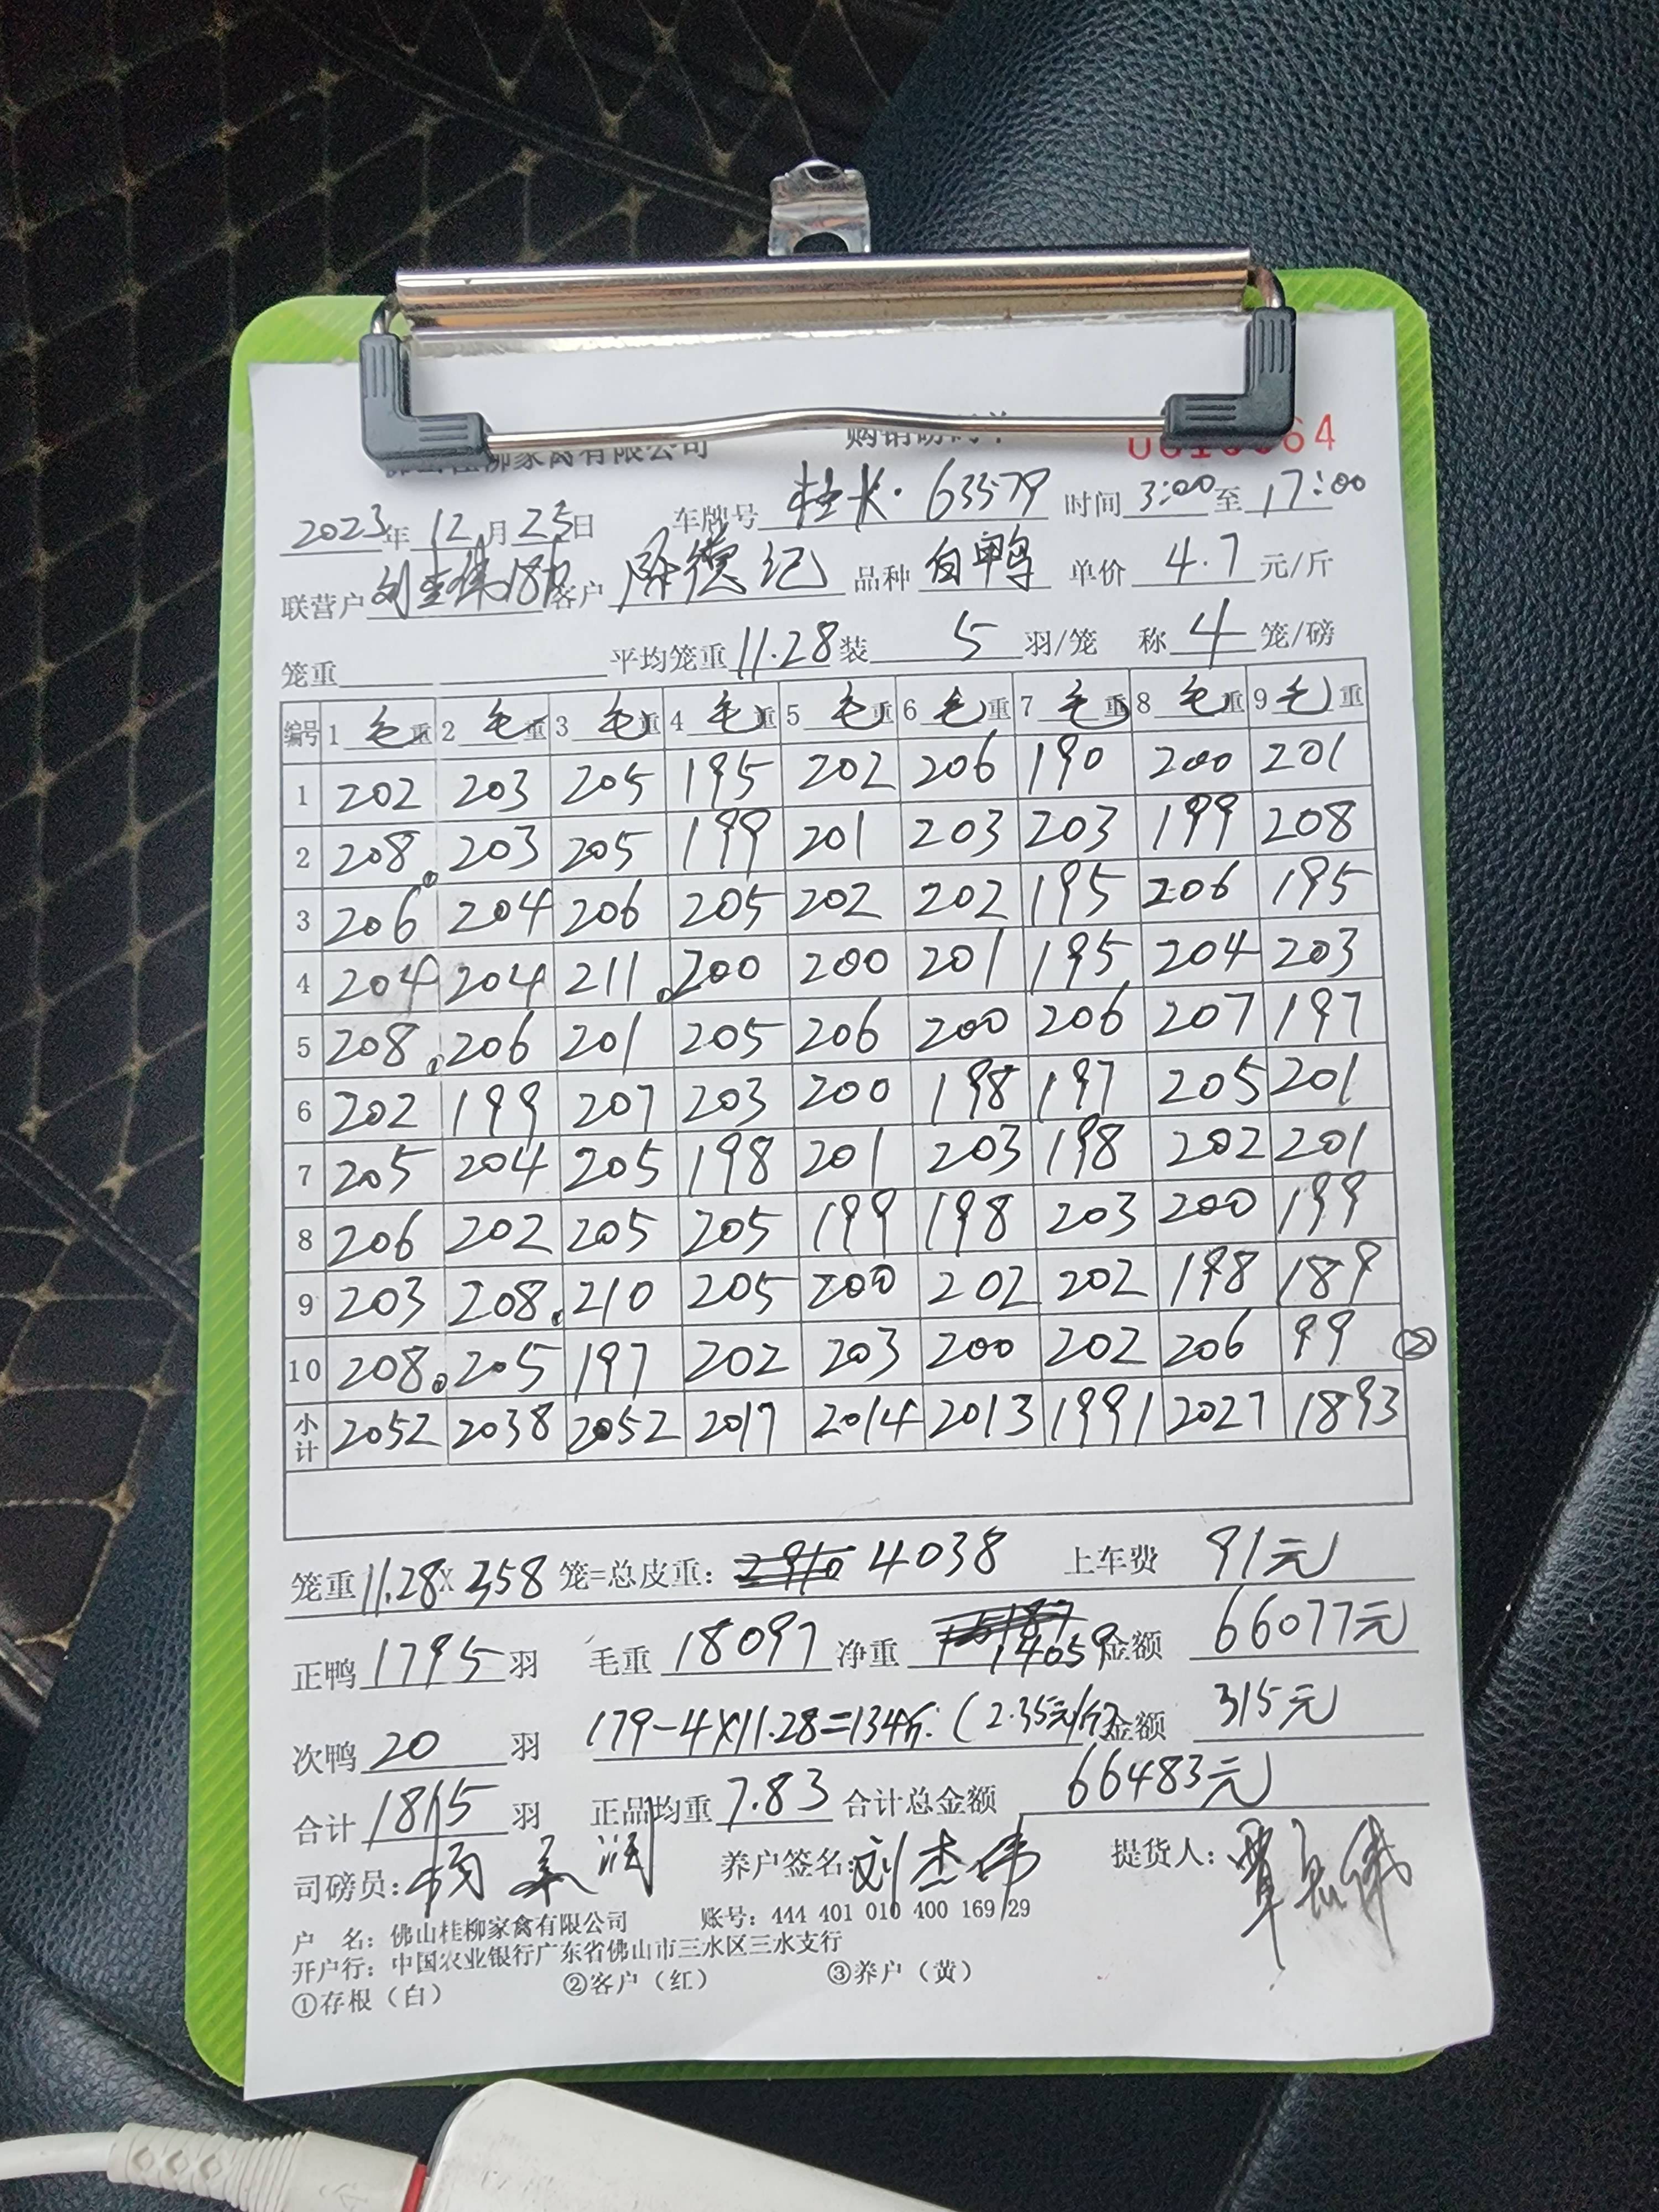 佛山桂柳家禽有限公司 购销磅码单 64
2023年12月25日 车牌号 63579 时间3:00至17:00
联营户 客户 陈德记 品种 白鸭 单价 4.7 元/斤
笼重 平均笼重11.28装 5 羽/笼 称 4 笼/磅
编号 1毛重 2毛重 3毛重 4毛重 5毛重 6毛重 7毛重 8毛重 9毛重
1 202 203 205 195 202 206 190 200 201
2 208 203 205 199 201 203 203 199 208
3 206 204 206 205 202 202 195 206 195
4 204 204 211 200 200 201 195 204 203
5 208 206 201 205 206 200 206 207 197
6 202 199 207 203 200 198 197 205 201
7 205 204 205 198 201 203 198 202 201
8 206 202 205 205 199 198 203 200 199
9 203 208 210 205 200 202 202 198 189
10 208 205 197 202 203 200 202 206 99 ②
小计 2052 2038 2052 2017 2014 2013 1991 2027 1893
笼重11.28×358笼=总皮重: 4038 上车费 91元
正鸭1795羽 毛重18097净重 14059金额 66077元
次鸭20羽 179-4×11.28=134斤(2.35元/斤)金额 315元
合计1815羽 正品均重7.83合计总金额 66483元
司磅员: 养户签名:刘杰伟 提货人:
户 名: 佛山桂柳家禽有限公司 账号: 444 401 010 400 169 29
开户行: 中国农业银行广东省佛山市三水区三水支行
①存根(白) ②客户(红) ③养户(黄)